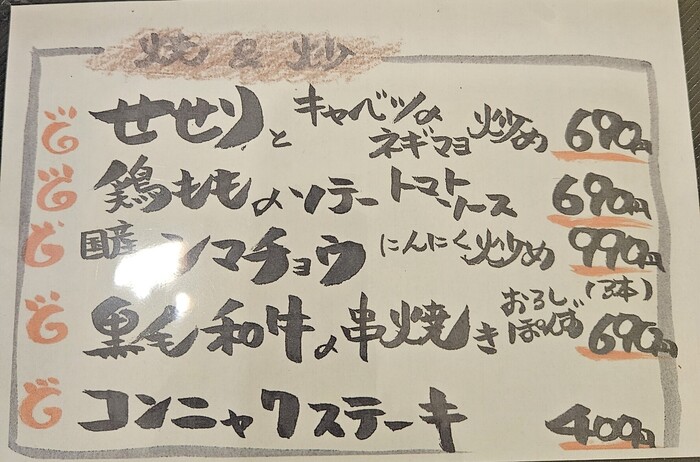 焼 & 炒
せせりとキャベツのネギマヨ炒め 690円
鶏もものソテー トマトソース 690円
国産シマチョウ にんにく炒め 990円
黒毛和牛の串焼き おろしぽんず (3本) 690円
コンニャクステーキ 400円